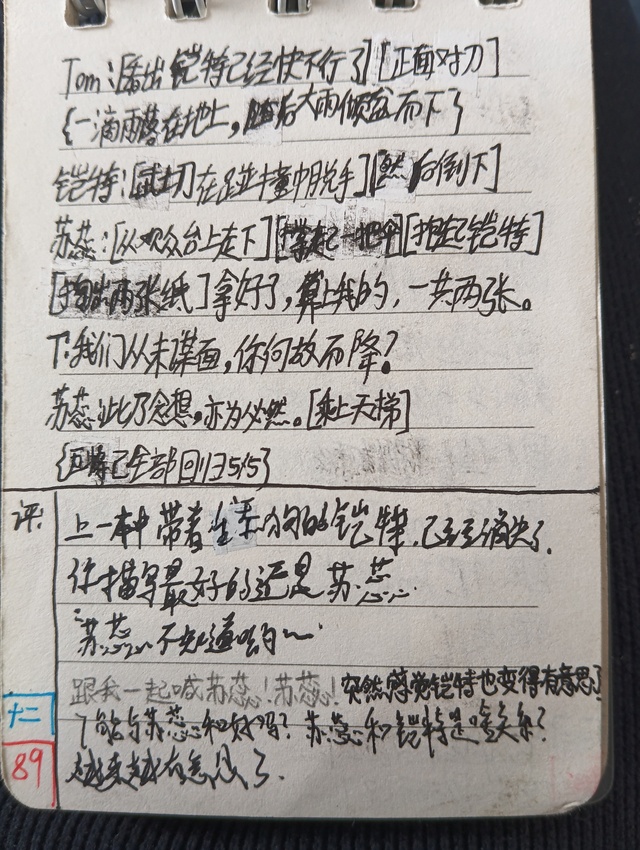 Tom:[看出铠特已经快不行了][正面对刀]
{一滴雨落在地上，随后大雨倾盆而下了
铠特:[试切在碰撞中脱手][然后倒下]
苏蕊:[从观众台上走下][撑起一把伞][抱起铠特]
[掏出两张纸]拿好了，算上我的，一共两张。
T:我们从未谋面，你何故而降？
苏蕊:此乃念想，亦为必然。[乘上天梯]
已全部回归515}
评:
上一本中带着 的铠特，已经消失了，
你描写最好的还是苏蕊
苏蕊 不知道哟~
跟我一起喊苏蕊！苏蕊！突然感觉铠特也变得有意思了
了能与苏蕊和好吗？苏蕊和铠特是啥关系？
越来越有意思了.
十二
89